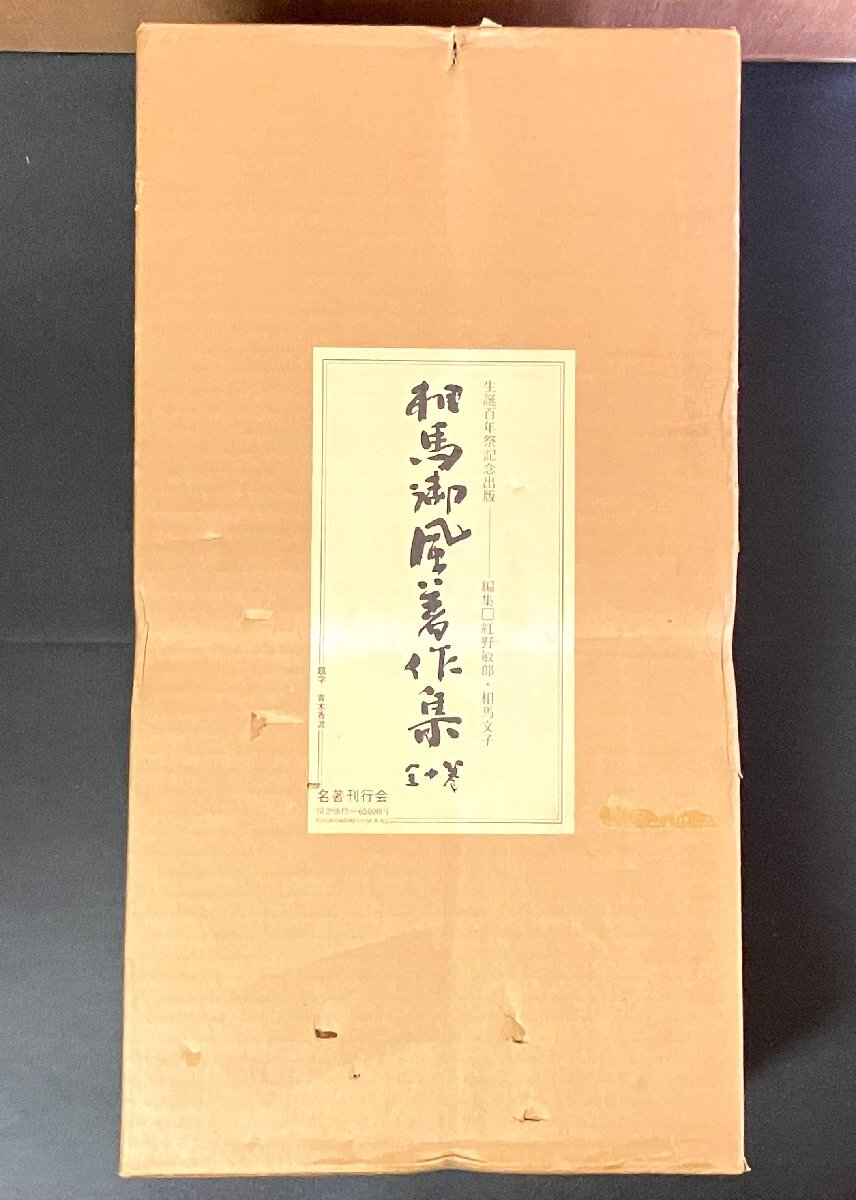 生誕百年祭記念出版――編集□紅野敏郎・相馬文子
相馬御風著作集
全十巻
題字 青木香流
名著刊行会
現金価格=65000円